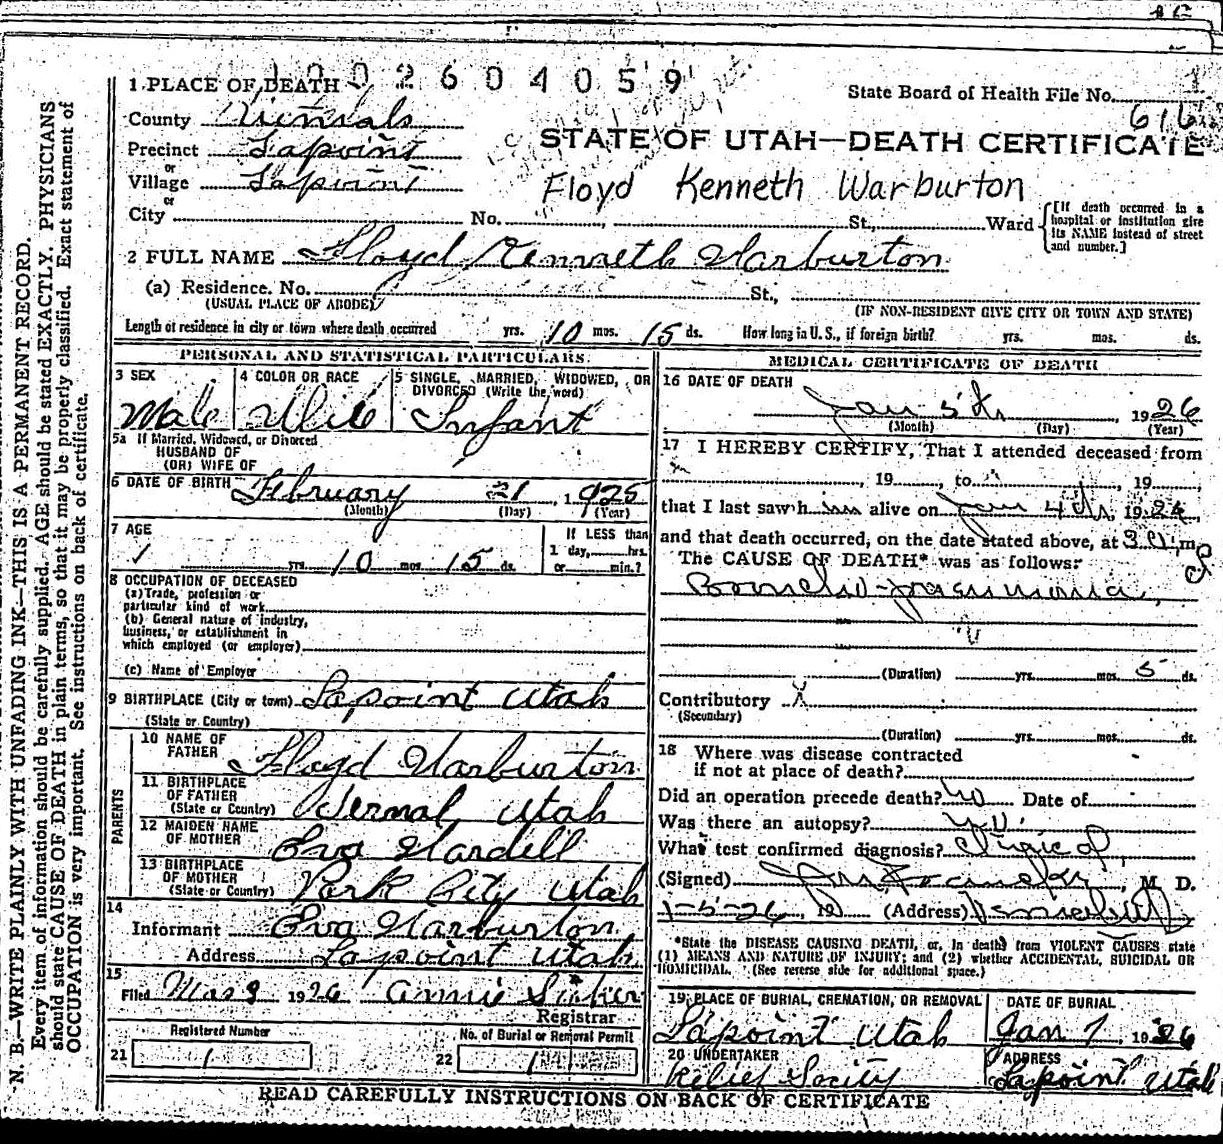 1 PLACE OF DEATH 1002604059
State Board of Health File No.
616
County
Precinct Lapoint
or
Village Lapoint
or
City No. St., Ward
[If death occurred in a hospital or institution give its NAME instead of street and number.]
STATE OF UTAH—DEATH CERTIFICATE
Floyd Kenneth Warburton
2 FULL NAME Floyd Kenneth Warburton
(a) Residence. No. St.,
(USUAL PLACE OF ABODE)
(IF NON-RESIDENT GIVE CITY OR TOWN AND STATE)
Length of residence in city or town where death occurred yrs. 10 mos. 15 ds. How long in U.S., if foreign birth? yrs. mos. ds.
PERSONAL AND STATISTICAL PARTICULARS.
3 SEX
Male
4 COLOR OR RACE
White
5 SINGLE, MARRIED, WIDOWED, OR
DIVORCED (Write the word)
Infant
5a If Married, Widowed, or Divorced
HUSBAND OF
(OR) WIFE OF
6 DATE OF BIRTH February 21, 1925
(Month) (Day) (Year)
7 AGE
yrs. 10 mos 15 ds.
If LESS than
1 day, hrs.
or min.?
8 OCCUPATION OF DECEASED
(a) Trade, profession or
particular kind of work
(b) General nature of industry,
business, or establishment in
which employed (or employer)
(c) Name of Employer
9 BIRTHPLACE (City or town) Lapoint Utah
(State or Country)
PARENTS
10 NAME OF
FATHER Floyd Warburton
11 BIRTHPLACE
OF FATHER
(State or Country) Vernal, Utah
12 MAIDEN NAME
OF MOTHER Eva Wardell
13 BIRTHPLACE
OF MOTHER
(State or Country) Park City Utah
14
Informant Eva Warburton
Address Lapoint Utah
15
Filed Mar 9 1926 Annie
Registrar
Registered Number
21 1
No. of Burial or Removal Permit
22 1
MEDICAL CERTIFICATE OF DEATH
16 DATE OF DEATH
Jan 5th, 1926
(Month) (Day) (Year)
17 I HEREBY CERTIFY, That I attended deceased from
, 19 , to , 19 ,
that I last saw h im alive on Jan 4th, 19
and that death occurred, on the date stated above, at 3 m
The CAUSE OF DEATH* was as follows:
Broncho-pneumonia,
(Duration) yrs. mos. 5 ds.
Contributory X
(Secondary)
(Duration) yrs. mos. ds.
18 Where was disease contracted
if not at place of death?
Did an operation precede death? no Date of
Was there an autopsy? no
What test confirmed diagnosis? Clinical
(Signed) , M. D.
1-5-26, 19 (Address)
*State the DISEASE CAUSING DEATH, or, in deaths from VIOLENT CAUSES state
(1) MEANS AND NATURE OF INJURY; and (2) whether ACCIDENTAL, SUICIDAL OR
HOMICIDAL. (See reverse side for additional space.)
19 PLACE OF BURIAL, CREMATION, OR REMOVAL
Lapoint Utah
DATE OF BURIAL
Jan 7, 1926
20 UNDERTAKER
Relief Socity
ADDRESS
Lapoint Utah
READ CAREFULLY INSTRUCTIONS ON BACK OF CERTIFICATE
N. B.—WRITE PLAINLY WITH UNFADING INK—THIS IS A PERMANENT RECORD.
Every item of information should be carefully supplied. AGE should be stated EXACTLY. PHYSICIANS
should state CAUSE OF DEATH in plain terms, so that it may be properly classified. Exact statement of
OCCUPATION is very important. See instructions on back of certificate.